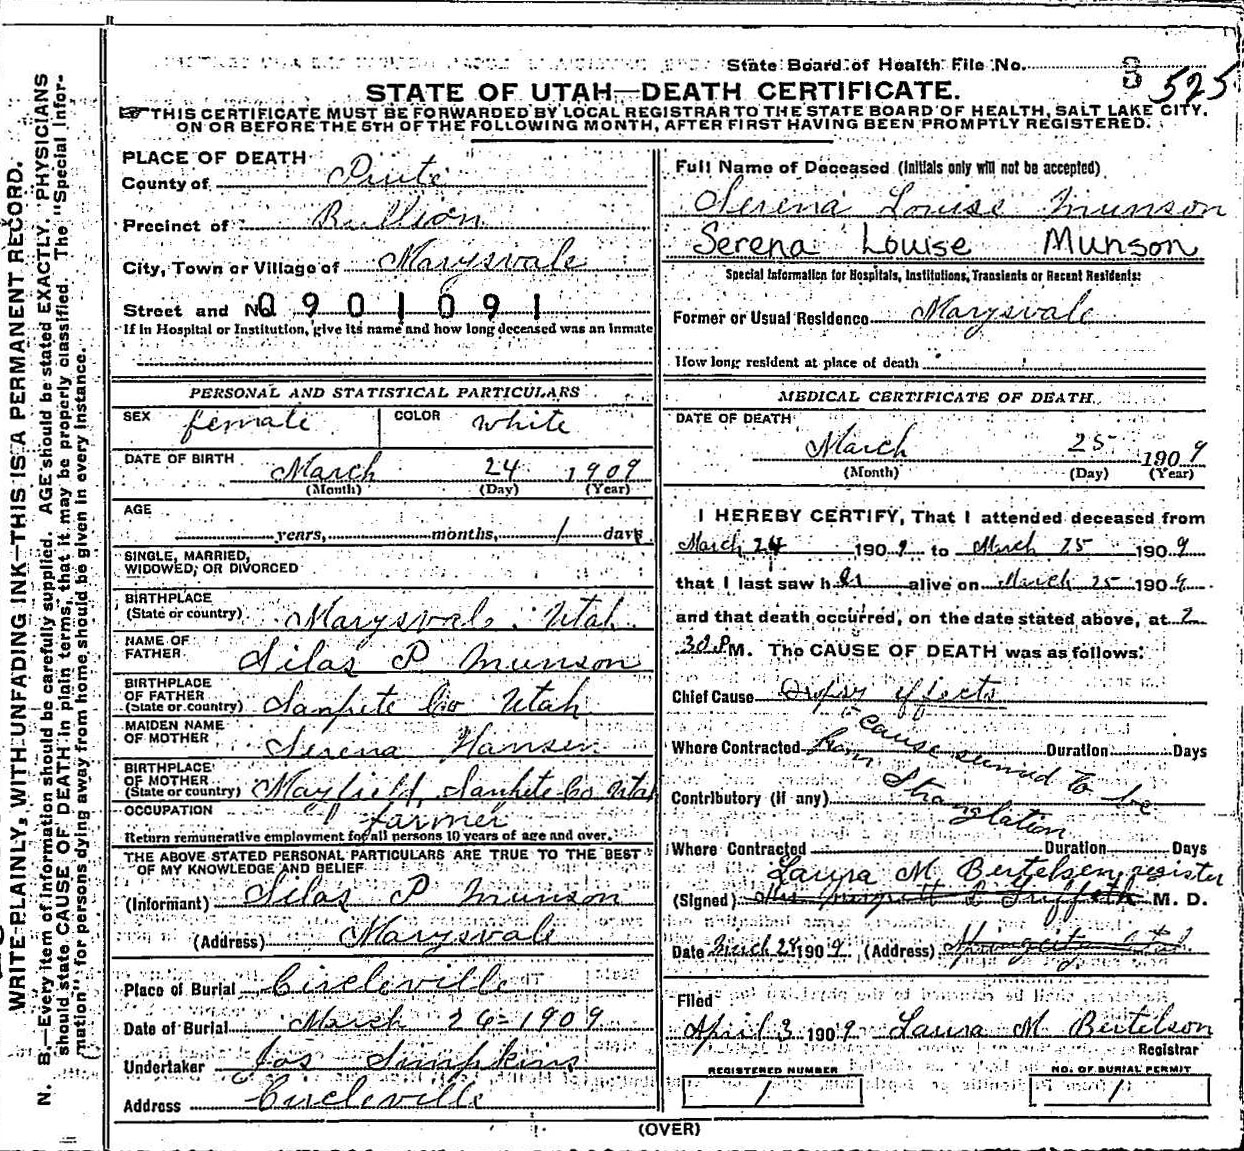 State Board of Health File No. 3 525
STATE OF UTAH—DEATH CERTIFICATE.
THIS CERTIFICATE MUST BE FORWARDED BY LOCAL REGISTRAR TO THE STATE BOARD OF HEALTH, SALT LAKE CITY.
ON OR BEFORE THE 5TH OF THE FOLLOWING MONTH, AFTER FIRST HAVING BEEN PROMPTLY REGISTERED.
WRITE PLAINLY, WITH UNFADING INK—THIS IS A PERMANENT RECORD.
N. B.—Every item of information should be carefully supplied. AGE should be stated EXACTLY. PHYSICIANS
should state CAUSE OF DEATH in plain terms, that it may be properly classified. The "Special Infor-
mation" for persons dying away from home should be given in every instance.
PLACE OF DEATH
County of Piute
Precinct of Bullion
City, Town or Village of Marysvale
Street and No. 0901091
If in Hospital or Institution, give its name and how long deceased was an inmate
PERSONAL AND STATISTICAL PARTICULARS
SEX female COLOR white
DATE OF BIRTH March 24 1909
(Month) (Day) (Year)
AGE
years, months, 1 days
SINGLE, MARRIED,
WIDOWED, OR DIVORCED
BIRTHPLACE
(State or country) Marysvale Utah
NAME OF
FATHER Silas P Munson
BIRTHPLACE
OF FATHER
(State or country) Sanpete Co Utah
MAIDEN NAME
OF MOTHER Serena Hansen
BIRTHPLACE
OF MOTHER
(State or country) Mayfield, Sanpete Co Utah
OCCUPATION farmer
Return remunerative employment for all persons 10 years of age and over.
THE ABOVE STATED PERSONAL PARTICULARS ARE TRUE TO THE BEST
OF MY KNOWLEDGE AND BELIEF
(Informant) Silas P Munson
(Address) Marysvale
Place of Burial Circleville
Date of Burial March 26-1909
Undertaker Jos Simpkins
Address Circleville
Full Name of Deceased (Initials only will not be accepted)
Serena Louise Munson
Serena Louise Munson
Special Information for Hospitals, Institutions, Transients or Recent Residents:
Former or Usual Residence Marysvale
How long resident at place of death
MEDICAL CERTIFICATE OF DEATH
DATE OF DEATH
March 25 1909
(Month) (Day) (Year)
I HEREBY CERTIFY, That I attended deceased from
March 24 1909 to March 25 1909
that I last saw her alive on March 25 1909
and that death occurred, on the date stated above, at 2
30 P M. The CAUSE OF DEATH was as follows:
Chief Cause effects
cause seemed to be
Where Contracted from Duration Days
Stranglation
Contributory (if any)
Where Contracted Duration Days
Laura M Bertelsen register
(Signed) L Griffith M. D.
Date March 28 1909 (Address) Utah
Filed
April 3 1909 Laura M Bertelson
Registrar
REGISTERED NUMBER
1
NO. OF BURIAL PERMIT
1
(OVER)